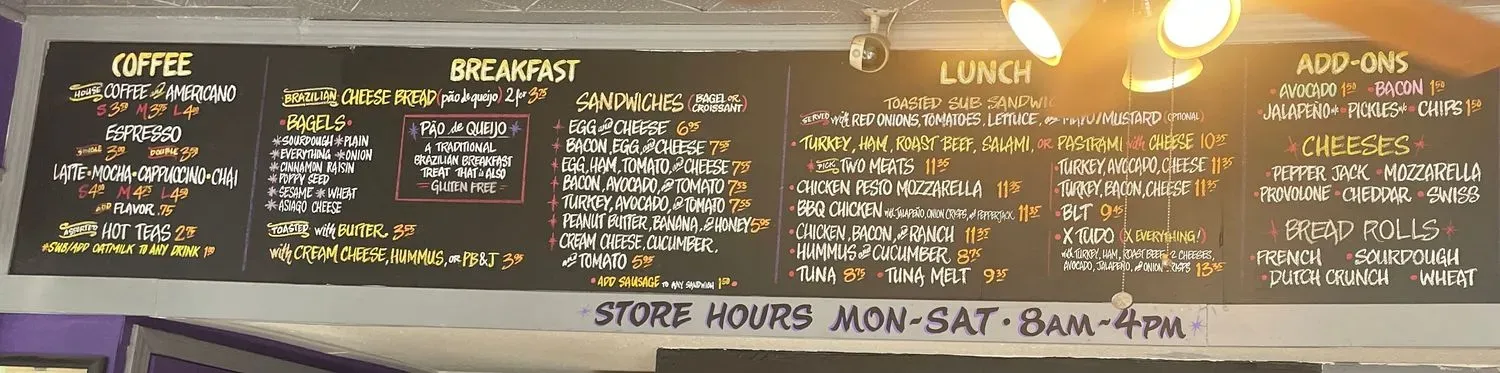 COFFEE
HOUSE COFFEE and AMERICANO
S 3.50 M 3.75 L 4.00
ESPRESSO
SINGLE 3.00 DOUBLE 3.50
LATTE • MOCHA • CAPPUCCINO • CHAI
S 4.00 M 4.25 L 4.50
ADD FLAVOR .75
ASSORTED HOT TEAS 2.75
*SUB/ADD OATMILK TO ANY DRINK 1.00
BREAKFAST
BRAZILIAN CHEESE BREAD (pão de queijo) 2 for 3.75
• BAGELS •
*SOURDOUGH *PLAIN
*EVERYTHING *ONION
*CINNAMON RAISIN
*POPPY SEED
*SESAME *WHEAT
*ASIAGO CHEESE
*PÃO de QUEIJO*
A TRADITIONAL
BRAZILIAN BREAKFAST
TREAT THAT IS ALSO
GLUTEN FREE
TOASTED with BUTTER. 3.25
with CREAM CHEESE, HUMMUS, OR PB&J 3.95
SANDWICHES (BAGEL OR CROISSANT)
• EGG and CHEESE 6.95
• BACON, EGG, and CHEESE 7.55
• EGG, HAM, TOMATO, and CHEESE 7.55
• BACON, AVOCADO, and TOMATO 7.55
• TURKEY, AVOCADO, and TOMATO 7.55
• PEANUT BUTTER, BANANA, and HONEY 5.95
• CREAM CHEESE, CUCUMBER,
and TOMATO 5.95
• ADD SAUSAGE TO ANY SANDWICH 1.50 •
LUNCH
TOASTED SUB
SERVED with RED ONIONS, TOMATOES, LETTUCE, and MAYO/MUSTARD (OPTIONAL)
• TURKEY, HAM, ROAST BEEF, SALAMI, OR PASTRAMI with CHEESE 10.35
• PICK TWO MEATS 11.35
• CHICKEN PESTO MOZZARELLA 11.35
• BBQ CHICKEN with JALAPEÑO, ONION CRISPS, and PEPPERJACK. 11.35
• CHICKEN, BACON, and RANCH 11.35
• HUMMUS and CUCUMBER. 8.75
• TUNA 8.75 • TUNA MELT 9.35
• TURKEY, AVOCADO, CHEESE 11.35
• TURKEY, BACON, CHEESE 11.35
• BLT 9.45
• X TUDO (X EVERYTHING!)
with TURKEY, HAM, ROAST BEEF, 2 CHEESES,
AVOCADO, JALAPEÑO, and ONION CRISPS 13.35
ADD-ONS
• AVOCADO 1.50 • BACON 1.50
• JALAPEÑO • PICKLES • CHIPS 1.50
CHEESES
• PEPPER JACK • MOZZARELLA
• PROVOLONE • CHEDDAR • SWISS
BREAD ROLLS
• FRENCH • SOURDOUGH
• DUTCH CRUNCH • WHEAT
STORE HOURS MON-SAT • 8AM-4PM